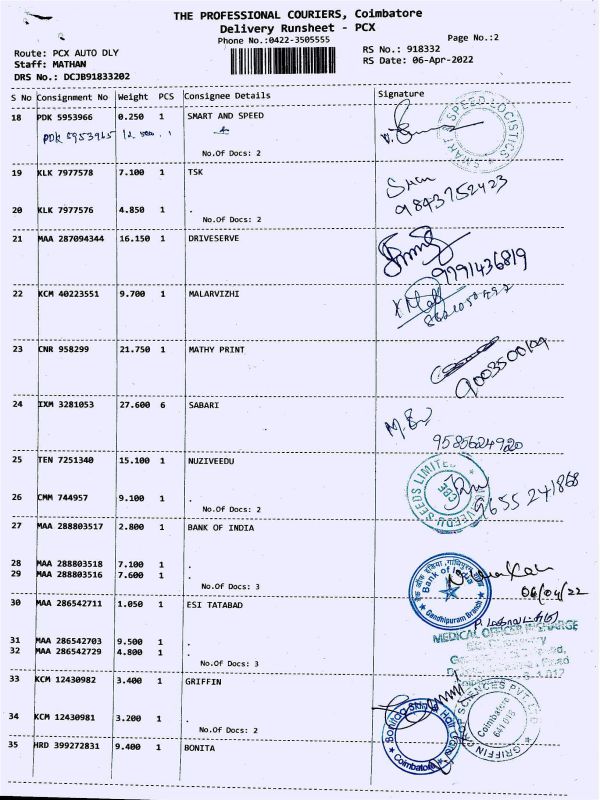 THE PROFESSIONAL COURIERS, Coimbatore
Delivery Runsheet - PCX
Phone No.:0422-3505555
Page No.:2
Route: PCX AUTO DLY
Staff: MATHAN
DRS No.: DCJB91833202
RS No.: 918332
RS Date: 06-Apr-2022
S No Consignment No Weight PCS Consignee Details Signature
18 PDK 5953966 0.250 1 SMART AND SPEED
PDK 5953965
SMART & SPEED LOGISTICS
No.Of Docs: 2
19 KLK 7977578 7.100 1 TSK
9843752423
20 KLK 7977576 4.850 1 .
No.Of Docs: 2
21 MAA 287094344 16.150 1 DRIVESERVE
9791436819
22 KCM 40223551 9.700 1 MALARVIZHI
23 CNR 958299 21.750 1 MATHY PRINT
24 IXM 3281053 27.600 6 SABARI
9585624920
25 TEN 7251340 15.100 1 NUZIVEEDU
NUZIVEEDU SEEDS LIMITED
CBE
9655 241868
26 CMM 744957 9.100 1 .
No.Of Docs: 2
27 MAA 288803517 2.800 1 BANK OF INDIA
28 MAA 288803518 7.100 1 .
29 MAA 288803516 7.600 1 .
Bank of India
Gandhipuram Branch
06/04/22
No.Of Docs: 3
30 MAA 286542711 1.050 1 ESI TATABAD
MEDICAL OFFICER INCHARGE
31 MAA 286542703 9.500 1 .
32 MAA 286542729 4.800 1 .
No.Of Docs: 3
33 KCM 12430982 3.400 1 GRIFFIN
34 KCM 12430981 3.200 1 .
No.Of Docs: 2
SCIENCES PVT. LTD.
GRIFFIN
Coimbatore
641 018
35 HRD 399272831 9.400 1 BONITA
Coimbatore